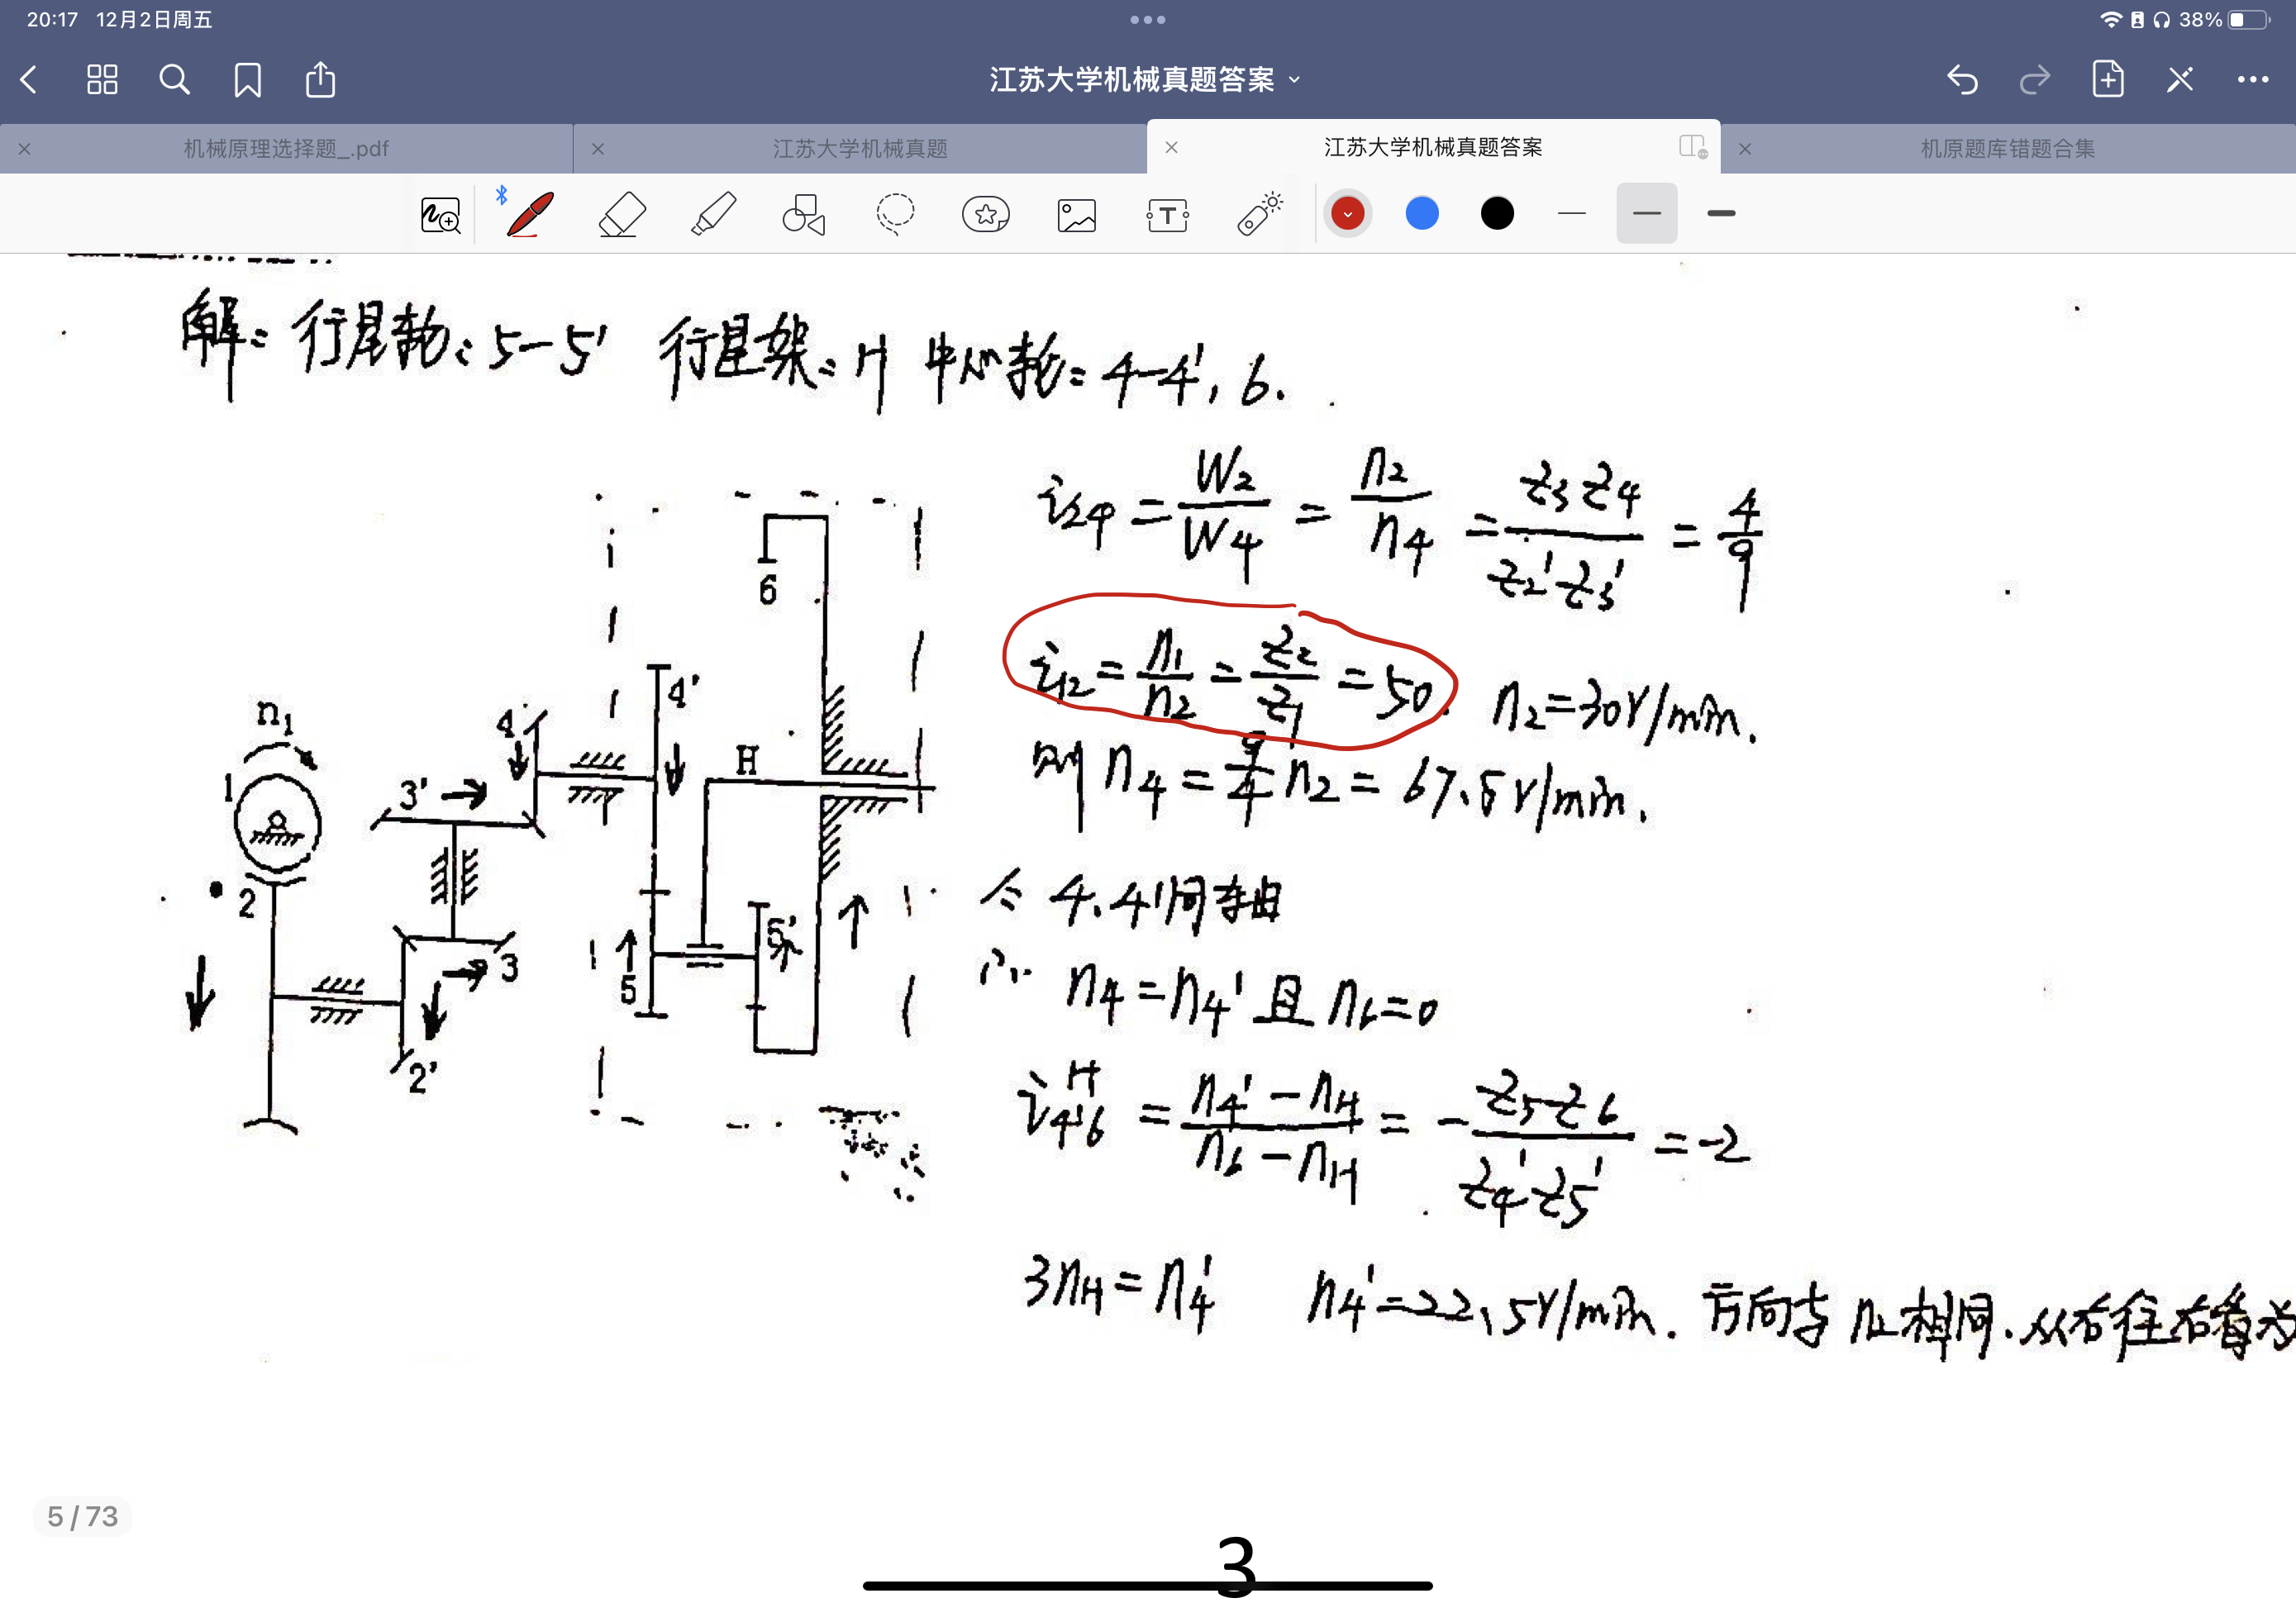 20:17 12月2日周五
38%
江苏大学机械真题答案
机械原理选择题_.pdf
江苏大学机械真题
江苏大学机械真题答案
机原题库错题合集
解: 行星轮: 5-5' 行星架: H 中心轮: 4-4', 6.
i24 = W2/W4 = n2/n4 = z3z4/z2'z3' = 4/9
i12 = n1/n2 = z2/z1 = 50. n2=30r/min.
则 n4 = 9/4 n2 = 67.5r/min.
4.4'同轴
n4=n4' 且 n6=0
i4'6^H = n4'-nH/n6-nH = -z5z6/z4'z5' = -2
3nH = n4' n4'=22.5r/min. 方向与 相同. 从右往右看为
n1
1
2
2'
3
3'
4
4'
5
5'
6
H
5 / 73
3